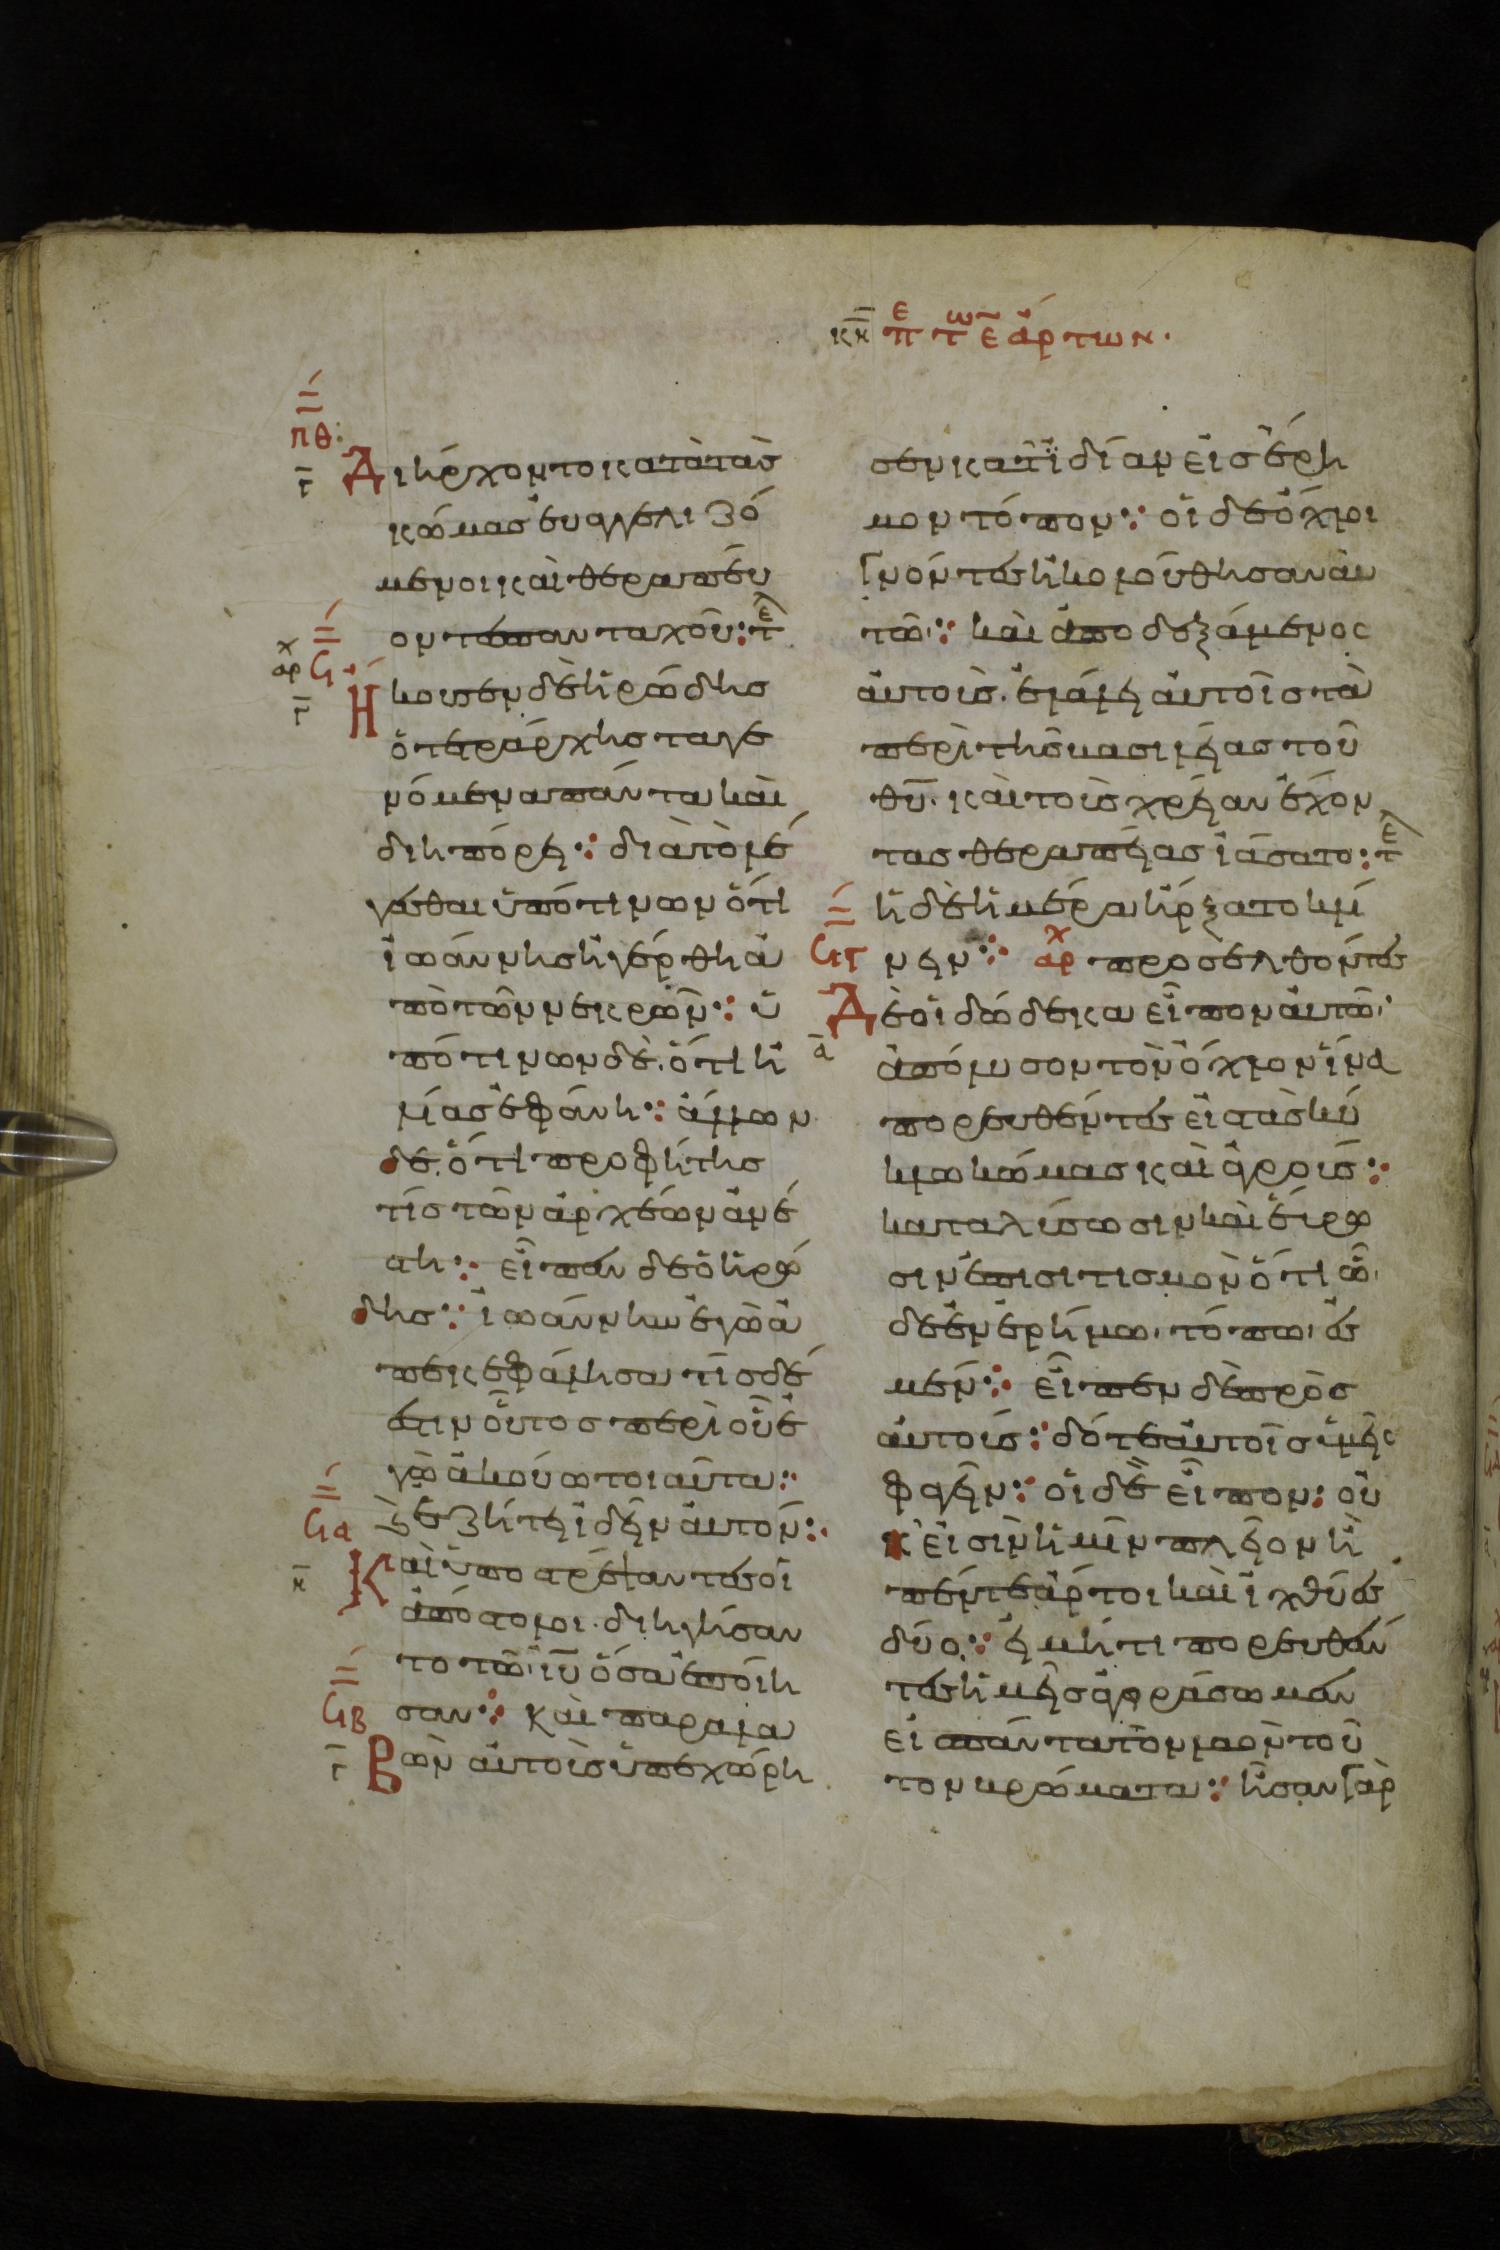 κη πε τω ε άρτων.
πθ
Διήρχοντο κατὰ τὰσ
γ
κώμασ ἐυαγγελιζό
μενοι καὶ θεραπέυ
ον τέσ πανταχοῦ: τε
αρχ
Ϟ
Ήκουσεν δὲ ἡρώδησ
γ
ὁ τεραρχησ τα γε
νόμενα πάντα καὶ
διηπόρει: διὰ τὸ λέ
γεσθαι ὑπό τινων ὅτι
ἰωάννησ ἠγέρθη ἀ
πὸ τῶν νεκρῶν: ὑ
πό τινων δὲ. ὅτι ἠ
λίασ ἐφάνη: ἄλλων
δέ. ὅτι προφήτησ
τίσ τῶν ἀρχέων ἀνέ
στη: εἶπεν δὲ ὁ ἡρώ
δησ: ἰωάννην ἐγὼ ἀ
πεκεφάλησα τίσ δέ
ἐστιν οὗτοσ περὶ οὗ ἐ
γὼ ἀκούω τοιαῦτα:
Ϟα
ϗ ἐζήτει ἰδεῖν ἀυτον:
Καὶ ὑποστρέψαντεσ οἱ
η
ἀπόστολοι. διηγήσαν
το τῶ ιῦ ὅσα ἐποίη
σαν: καὶ παραλα
Ϟβ
Βὼν ἀυτοὺσ ὑπεχώρη
γ
σεν κατ ϊδίαν εἰσ ἔρη
μον τόπον: οἱ δὲ ὄχλοι
γνόντεσ ἠκολούθησαν ἀυ
τῶ: καὶ ἀποδεξάμενος
ἀυτοὺσ. ἐλάλει ἀυτοῖσ τὰ
περὶ τῆσ βασιλείασ τοῦ
θῦ. καὶ τοὺσ χρείαν ἔχον
τασ θεραπείασ ἰάσατο: τε
ἡ δὲ ἡμέρα ἤρξατο κλί
Ϟγ
νειν: αρχ προσελθόντεσ
Δὲ οἱ δώδεκα εἶπον ἀυτῶ.
α
ἀπόλυσον τὸν ὄχλον ἵνα
πορευθέντεσ εἰσ τὰσ κύ
κλω κώμασ καὶ ἀγρούσ:
καταλύσωσιν καὶ ἕυρω
σιν ἐπισιτισμον ὅτι ὧ
δε ἐν ἐρήμω τόπω ἐσ
μέν: εἶπεν δὲ πρὸσ
ἀυτούσ: δότε ἀυτοῖσ ὑμεῖσ
φαγεῖν: οἱ δὲ εἶπον: οὐ
κ εἰσὶν ἡμῖν πλεῖον ἢ
πέντε ἄρτοι καὶ ἰχθύεσ
δύο: εἰ μήτι πορευθέν
τεσ ἡμεῖσ ἀγοράσωμεν
εἰσ πάντα τὸν λαὸν τοῦ
τον βρώματα: ἦσαν γὰρ